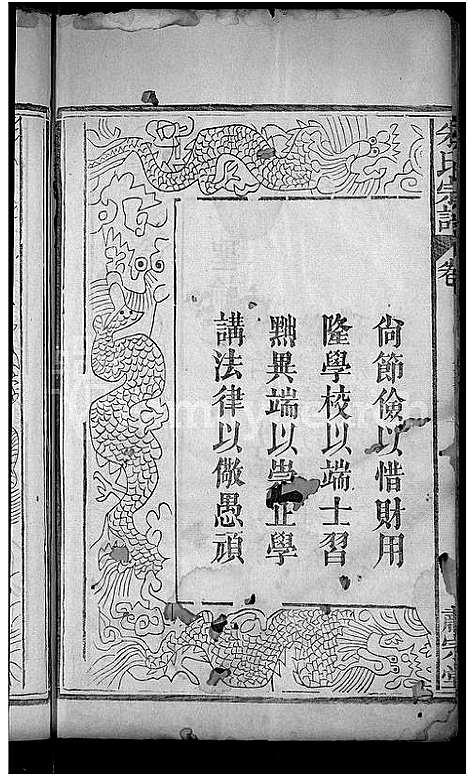 尙節儉以惜財用
隆學校以端士習
黜異端以崇正學
講法律以儆愚頑
氏宗譜 卷